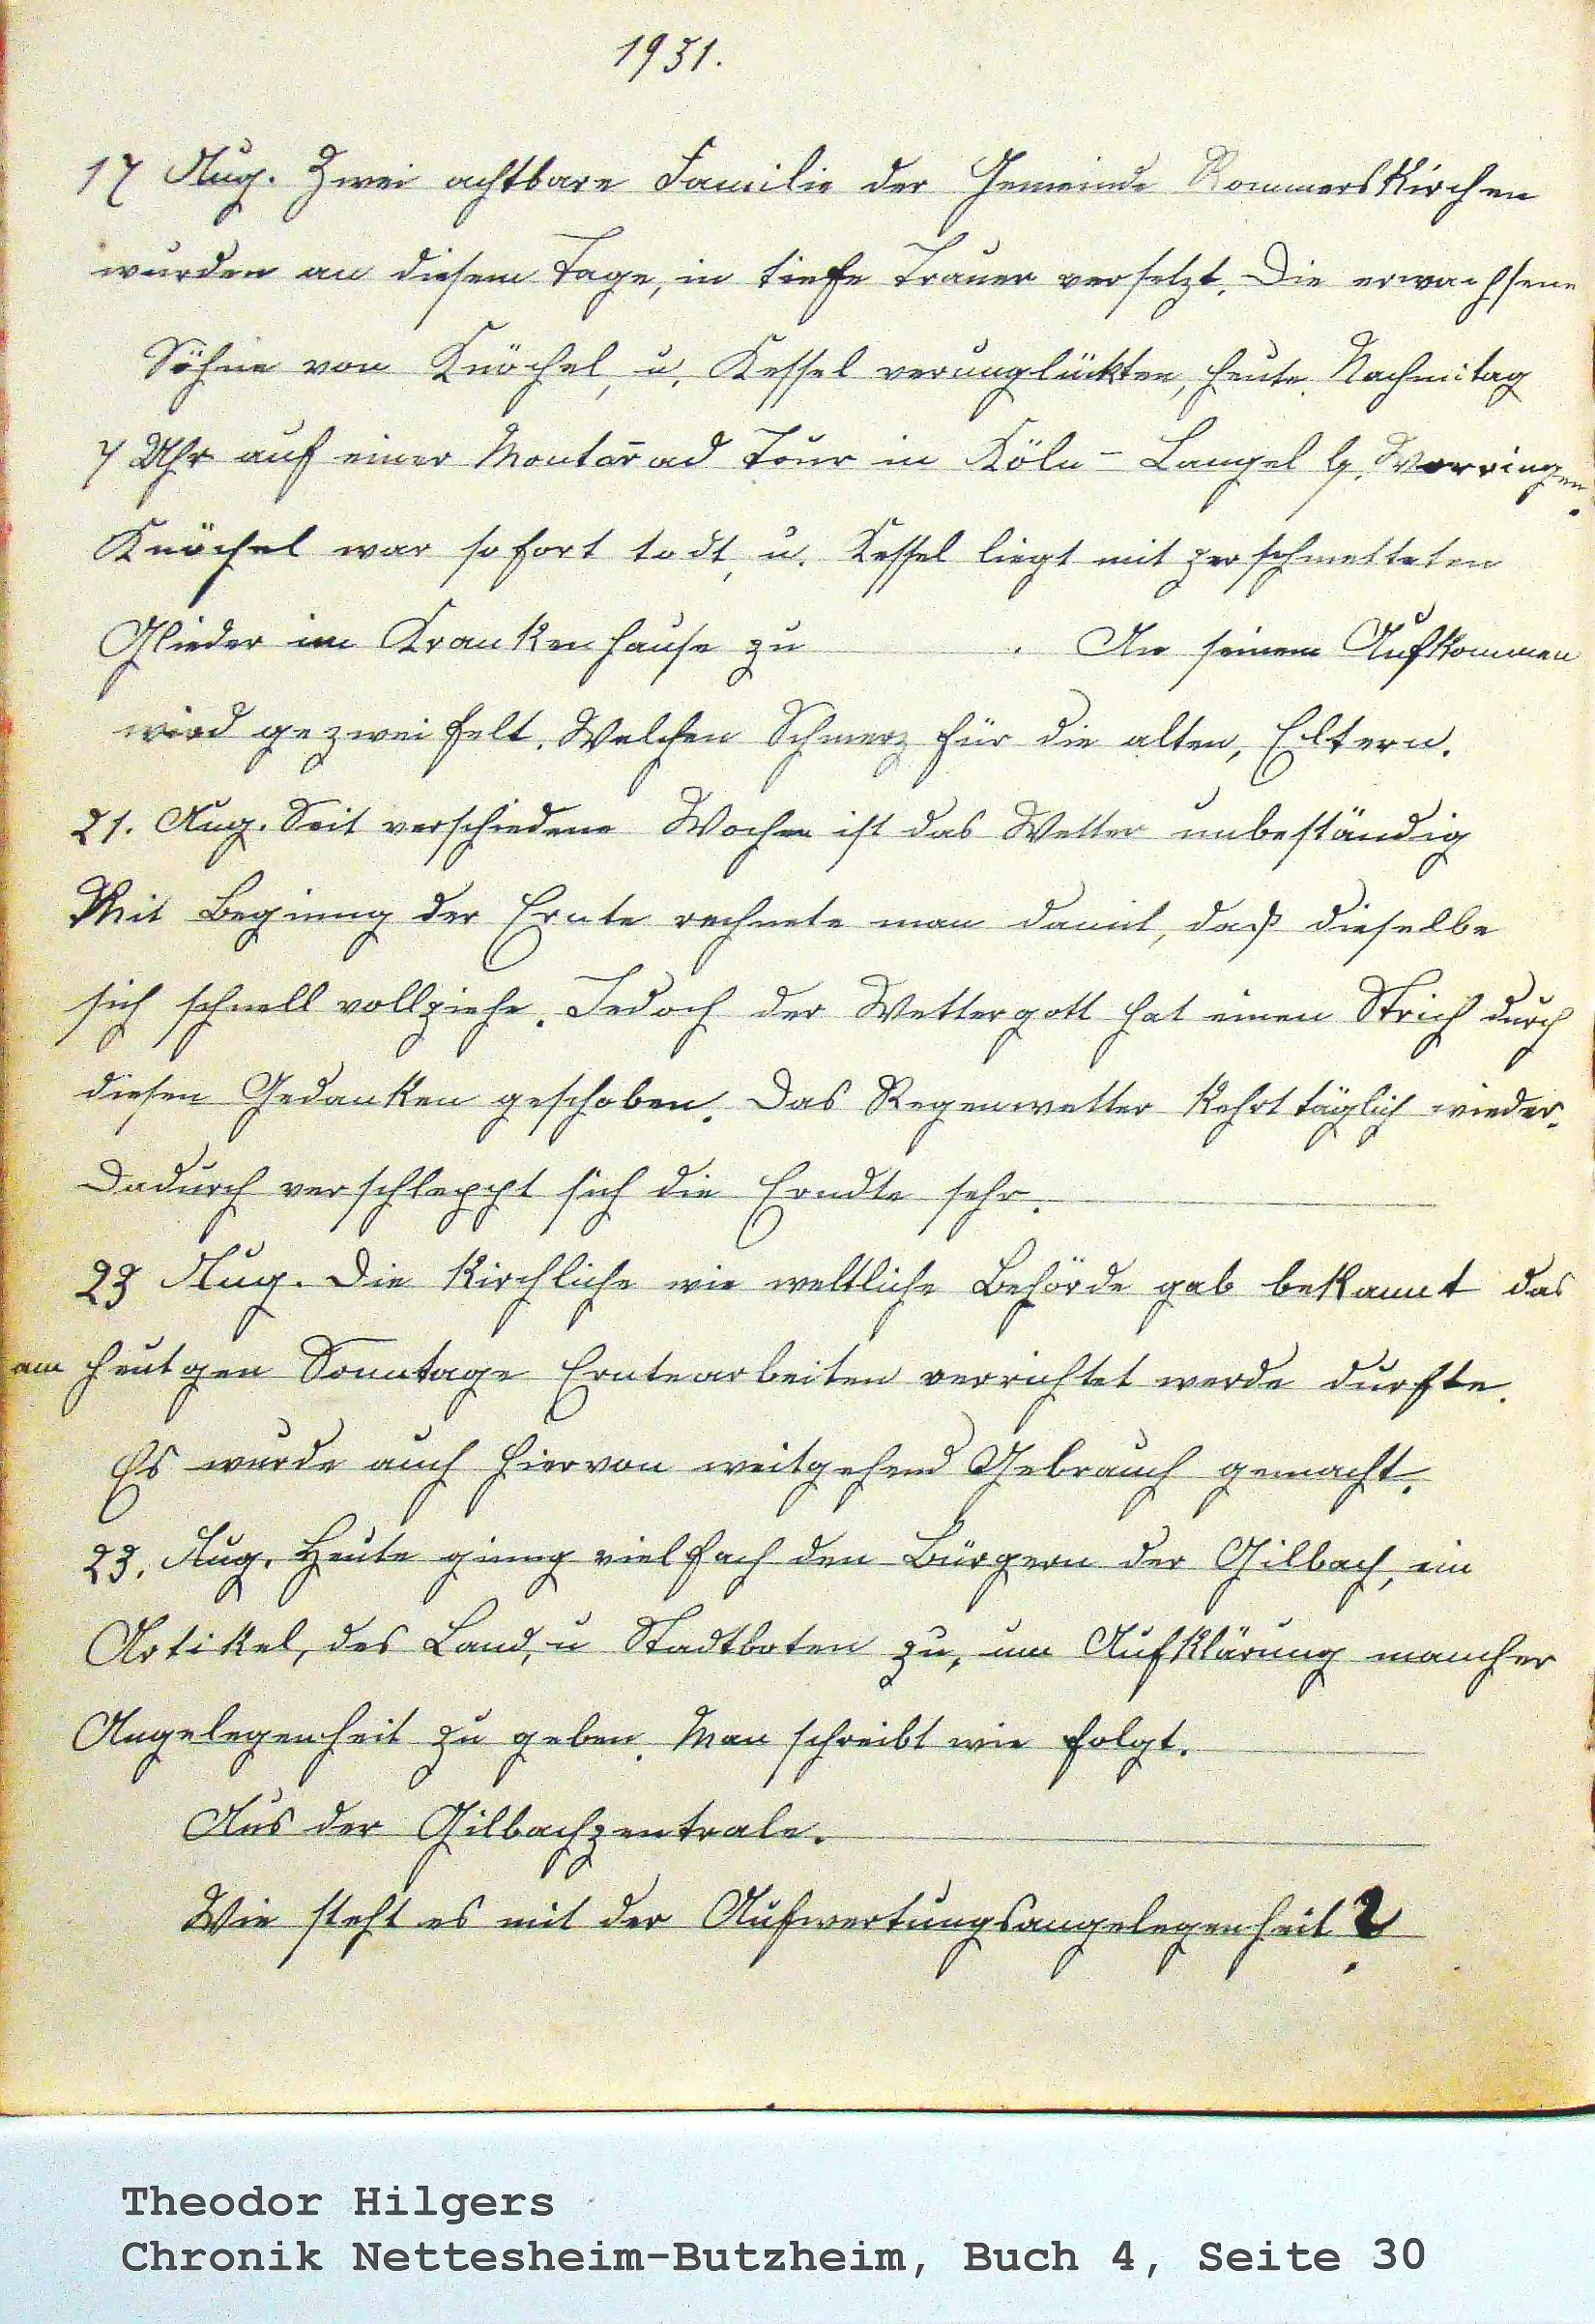 1931.
17 Aug. Zwei achtbare Familie der Gemeinde Rommerskirchen
wurden an diesem Tage, in tiefe Trauer versetzt. Die erwachsene
Söhne von Knöchel, u. Kessel verunglückten, heute Nachmitag
7 Uhr auf einer Montorrad Tour in Köln - Langel b. Worringen.
Knöchel war sofort todt, u. Kessel liegt mit zerschmetteten
Glieder im Krankenhause zu . An seinem Aufkommen
wird gezweifelt. Welchen Schmerz für die alten, Eltern.
21. Aug. Seit verschiedene Wochen ist das Wetter unbeständig
Mit Beginng der Ernte rechnete man damit, daß dieselbe
sich schnell vollziehe. Jedoch der Wettergott hat einen Strich durch
diesen Gedanken geschoben. Das Regenwetter kehrt täglich wieder.
Dadurch verschleppt sich die Erndte sehr.
23 Aug. Die kirchliche wie weltliche Behörde gab bekannt das
am heutgen Sonntage Erntearbeiten verrichtet werde durfte.
Es wurde auch hiervon weitgehend Gebrauch gemacht.
23. Aug. Heute ginng vielfach den Bürgern der Gilbach, ein
Artikel, des Land, u Stadtboten zu, um Aufklärung mancher
Angelegenheit zu geben. Man schreibt wie folgt.
Aus der Gilbachzentrale.
Wie steht es mit der Aufwertungsangelegenheit?
Theodor Hilgers
Chronik Nettesheim-Butzheim, Buch 4, Seite 30